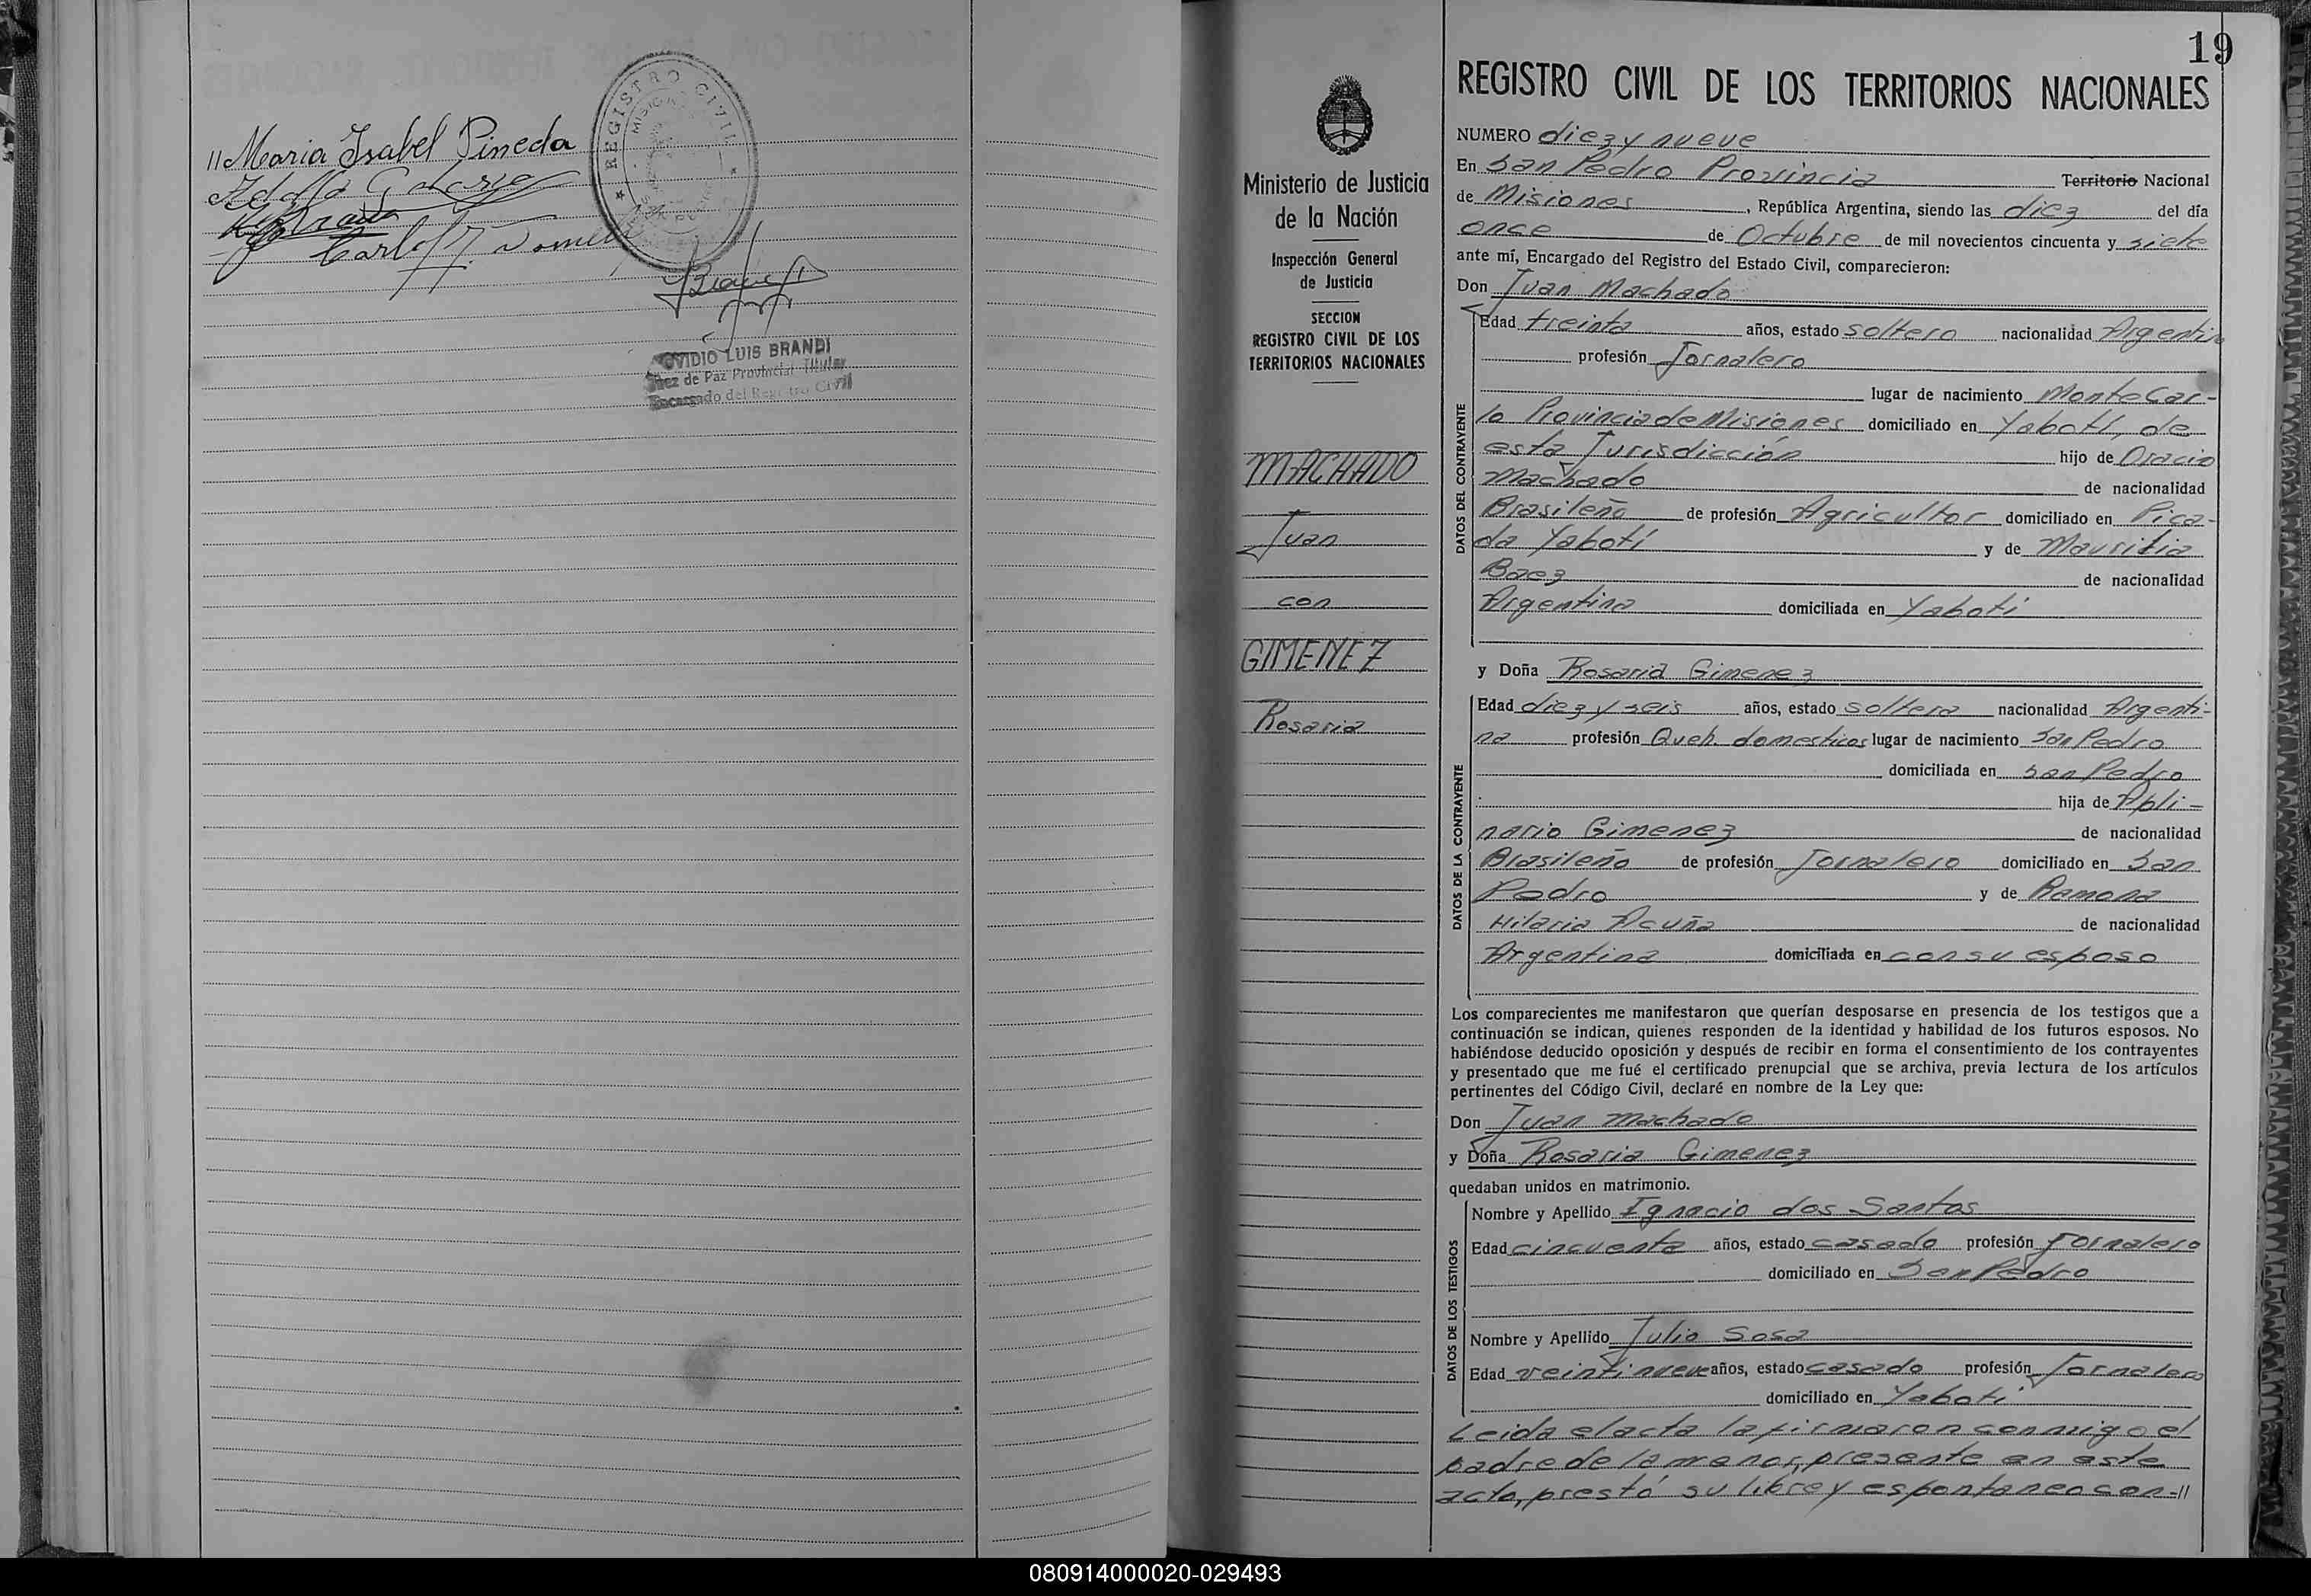 // Maria Isabel Pineda
REGISTRO CIVIL
MISIONES
OVIDIO LUIS BRANDI
Juez de Paz Provincial Titular
Encargado del Registro Civil
19
Ministerio de Justicia
de la Nación
Inspección General
de Justicia
SECCION
REGISTRO CIVIL DE LOS
TERRITORIOS NACIONALES
MACHADO
Juan
con
GIMENEZ
Rosaria
REGISTRO CIVIL DE LOS TERRITORIOS NACIONALES
NUMERO diez y nueve
En San Pedro Provincia Territorio Nacional
de Misiones, República Argentina, siendo las diez del día
once de Octubre de mil novecientos cincuenta y siete
ante mí, Encargado del Registro del Estado Civil, comparecieron:
Don Juan Machado
DATOS DEL CONTRAYENTE
Edad treinta años, estado soltero nacionalidad Argentino
profesión Jornalero
lugar de nacimiento Monte Car-
lo Provincia de Misiones domiciliado en Yabotí, de
esta Jurisdicción hijo de Oracio
Machado de nacionalidad
Brasileño de profesión Agricultor domiciliado en Pica-
da Yabotí y de Mauricia
Baez de nacionalidad
Argentina domiciliada en Yabotí
y Doña Rosaria Gimenez
DATOS DE LA CONTRAYENTE
Edad diez y seis años, estado soltera nacionalidad Argenti-
na profesión Queh. domesticos lugar de nacimiento San Pedro
domiciliada en San Pedro
hija de Apli-
nario Gimenez de nacionalidad
Brasileño de profesión Jornalero domiciliado en San
Pedro y de Ramona
Hilaria Acuña de nacionalidad
Argentina domiciliada en con su esposo
Los comparecientes me manifestaron que querían desposarse en presencia de los testigos que a
continuación se indican, quienes responden de la identidad y habilidad de los futuros esposos. No
habiéndose deducido oposición y después de recibir en forma el consentimiento de los contrayentes
y presentado que me fué el certificado prenupcial que se archiva, previa lectura de los artículos
pertinentes del Código Civil, declaré en nombre de la Ley que:
Don Juan Machado
y Doña Rosaria Gimenez
quedaban unidos en matrimonio.
DATOS DE LOS TESTIGOS
Nombre y Apellido Ignacio dos Santos
Edad cincuenta años, estado casado profesión Jornalero
domiciliado en San Pedro
Nombre y Apellido Julio Sosa
Edad veintinueve años, estado casado profesión Jornalero
domiciliado en Yabotí
Leida el acta la firmaron conmigo el
padre de la menor, presente en este
acto, prestó su libre y espontaneo con-//
080914000020-029493